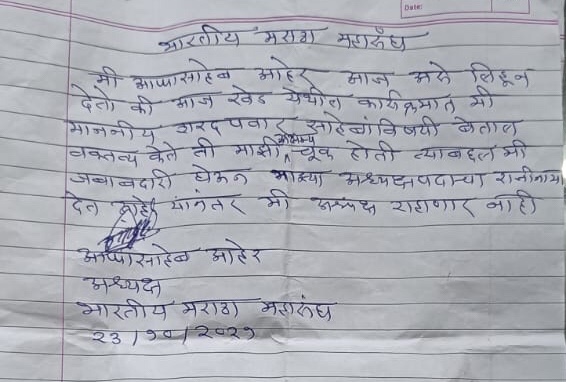 Date:
भारतीय मराठा महासंघ
मी आप्पासाहेब आहेर आज असे लिहून
देतो की आज खेड येथील कार्यक्रमात मी
माननीय शरद पवार साहेबांविषयी बेताल
वक्तव्य केले ती माझी अक्षम्य चूक होती त्याबद्दल मी
जबाबदारी घेऊन माझ्या अध्यक्षपदाचा राजीनामा
देत आहे यानंतर मी अध्यक्ष राहाणार नाही
आप्पासाहेब आहेर
अध्यक्ष
भारतीय मराठा महासंघ
२३/१०/२०२१